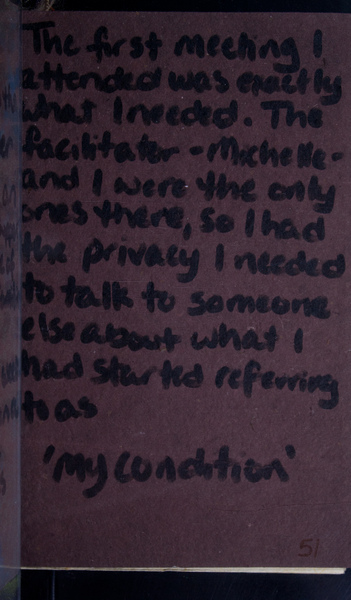 The first meeting I
attended was exactly
what I needed. The
facilitator - Michelle -
and I were the only
ones there, so I had
the privacy I needed
to talk to someone
else about what I
had started referring
to as
'My condition'
51